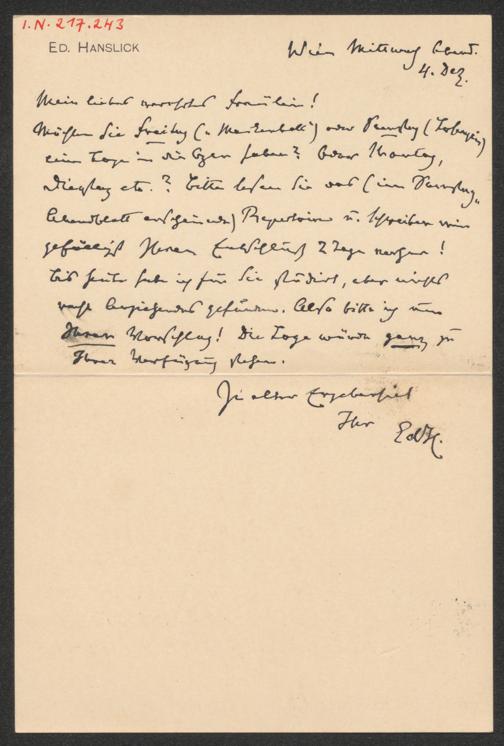 I.N. 217.243
ED. HANSLICK
Wien Mittwoch Abend.
4. Dez.
Mein liebes verehrtes Fräulein!
Möchten Sie Freitag („Maskenball“) oder Samstag (Lohengrin)
eine Loge in die Oper haben? Oder Montag,
Dienstag etc.? Bitte lesen Sie das (im Samstag-
Abendblatt erscheinende) Repertoire u. schreiben mir
gefälligst Ihren Entschluß 2 Tage vorher!
Bis heute habe ich für Sie studirt, aber nichts
recht Anziehendes gefunden. Also bitte ich um
Ihren Vorschlag! Die Loge würde ganz zu
Ihrer Verfügung stehen.
In alter Ergebenheit
Ihr EdH.